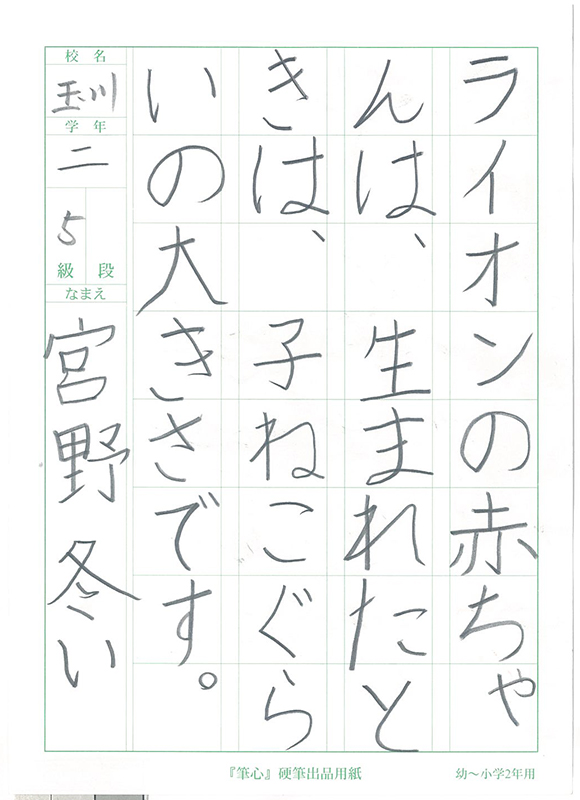 ライオンの赤ちゃ
んは、生まれたと
きは、子ねこぐら
いの大きさです。
校名
玉川
学年
二
5
級 段
なまえ
宮野冬い
『筆心』硬筆出品用紙
幼〜小学2年用